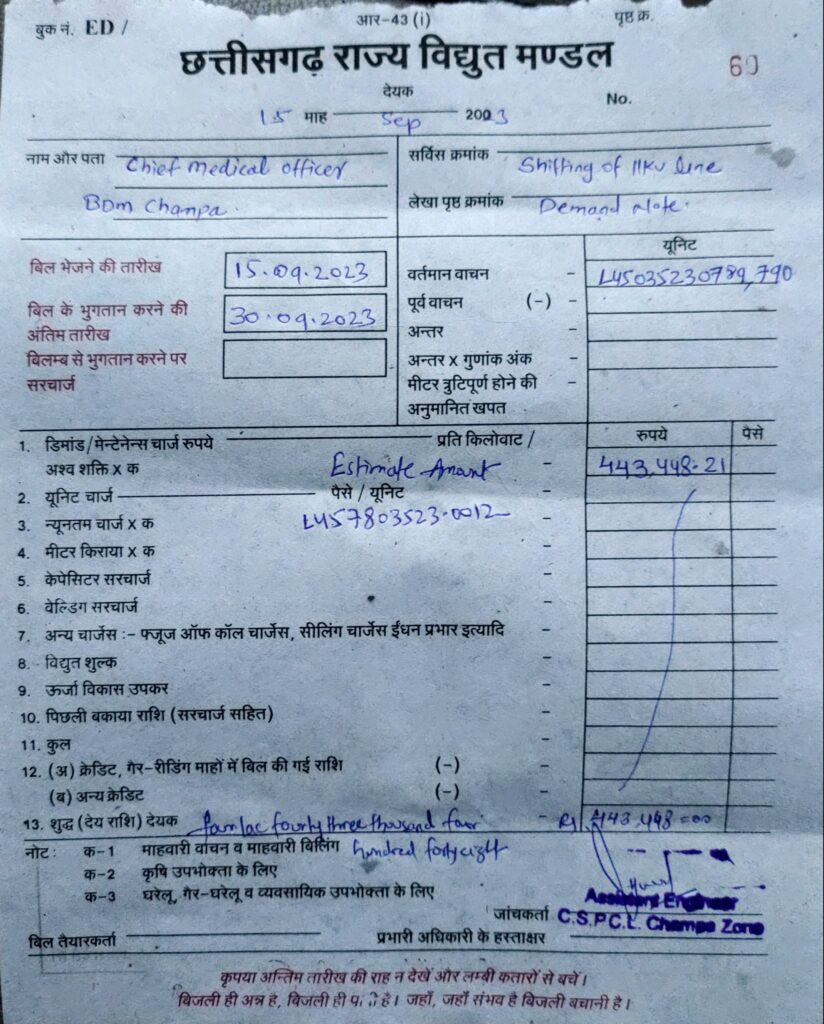 बुक नं. ED /
आर-43 (i)
पृष्ठ क्र.
छत्तीसगढ़ राज्य विद्युत मण्डल
60
देयक
No.
15 माह Sep 2003
नाम और पता Chief Medical Officer
BDM Champa.
सर्विस क्रमांक Shifting of 11KV line
लेखा पृष्ठ क्रमांक Demand Note.
यूनिट
बिल भेजने की तारीख 15.09.2023
बिल के भुगतान करने की अंतिम तारीख 30.09.2023
बिलम्ब से भुगतान करने पर सरचार्ज
वर्तमान वाचन - L45035230789,790
पूर्व वाचन (-) -
अन्तर -
अन्तर X गुणांक अंक -
मीटर त्रुटिपूर्ण होने की -
अनुमानित खपत
रुपये पैसे
1. डिमांड/मेन्टेनेन्स चार्ज रुपये प्रति किलोवाट /
अश्व शक्ति X क Estimate Amount - 443,448.21
2. यूनिट चार्ज पैसे / यूनिट -
3. न्यूनतम चार्ज X क L457803523.0012 -
4. मीटर किराया X क -
5. केपेसिटर सरचार्ज -
6. वेल्डिंग सरचार्ज -
7. अन्य चार्जेस :- फ्यूज ऑफ कॉल चार्जेस, सीलिंग चार्जेस ईंधन प्रभार इत्यादि -
8. विद्युत शुल्क -
9. ऊर्जा विकास उपकर -
10. पिछली बकाया राशि (सरचार्ज सहित) -
11. कुल -
12. (अ) क्रेडिट, गैर-रीडिंग माहों में बिल की गई राशि (-) -
(ब) अन्य क्रेडिट (-) -
13. शुद्ध (देय राशि) देयक four lac fourty three thousand four Rs 443,448=00
नोट : क-1 माहवारी वाचन व माहवारी बिलिंग hundred forty eight
क-2 कृषि उपभोक्ता के लिए
क-3 घरेलू, गैर-घरेलू व व्यवसायिक उपभोक्ता के लिए
Assistent Engineer
जांचकर्ता C.S.P.C.L. Champa Zone
बिल तैयारकर्ता प्रभारी अधिकारी के हस्ताक्षर
कृपया अन्तिम तारीख की राह न देखें और लम्बी कतारों से बचें।
बिजली ही अन्न है, बिजली ही पानी है। जहाँ, जहाँ संभव है बिजली बचानी है।